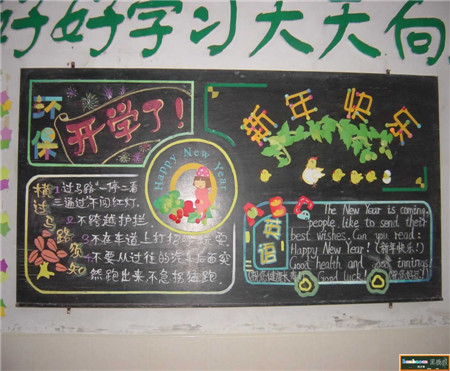 好好学习天天向
环保
开学了!
新年快乐
Happy New Year
横过马路须知
1.过马路“一停二看
三通过”不闯红灯.
2.不跨越护栏.
3.不在车道上打招
4.不要从过往的汽车后面突
然跑出来,不急拐猛跑.
英语
The New Year is coming,
people like to send their
best wishes. Can you read:
Happy New Year! (新年快乐!)
Good health and
good luck!